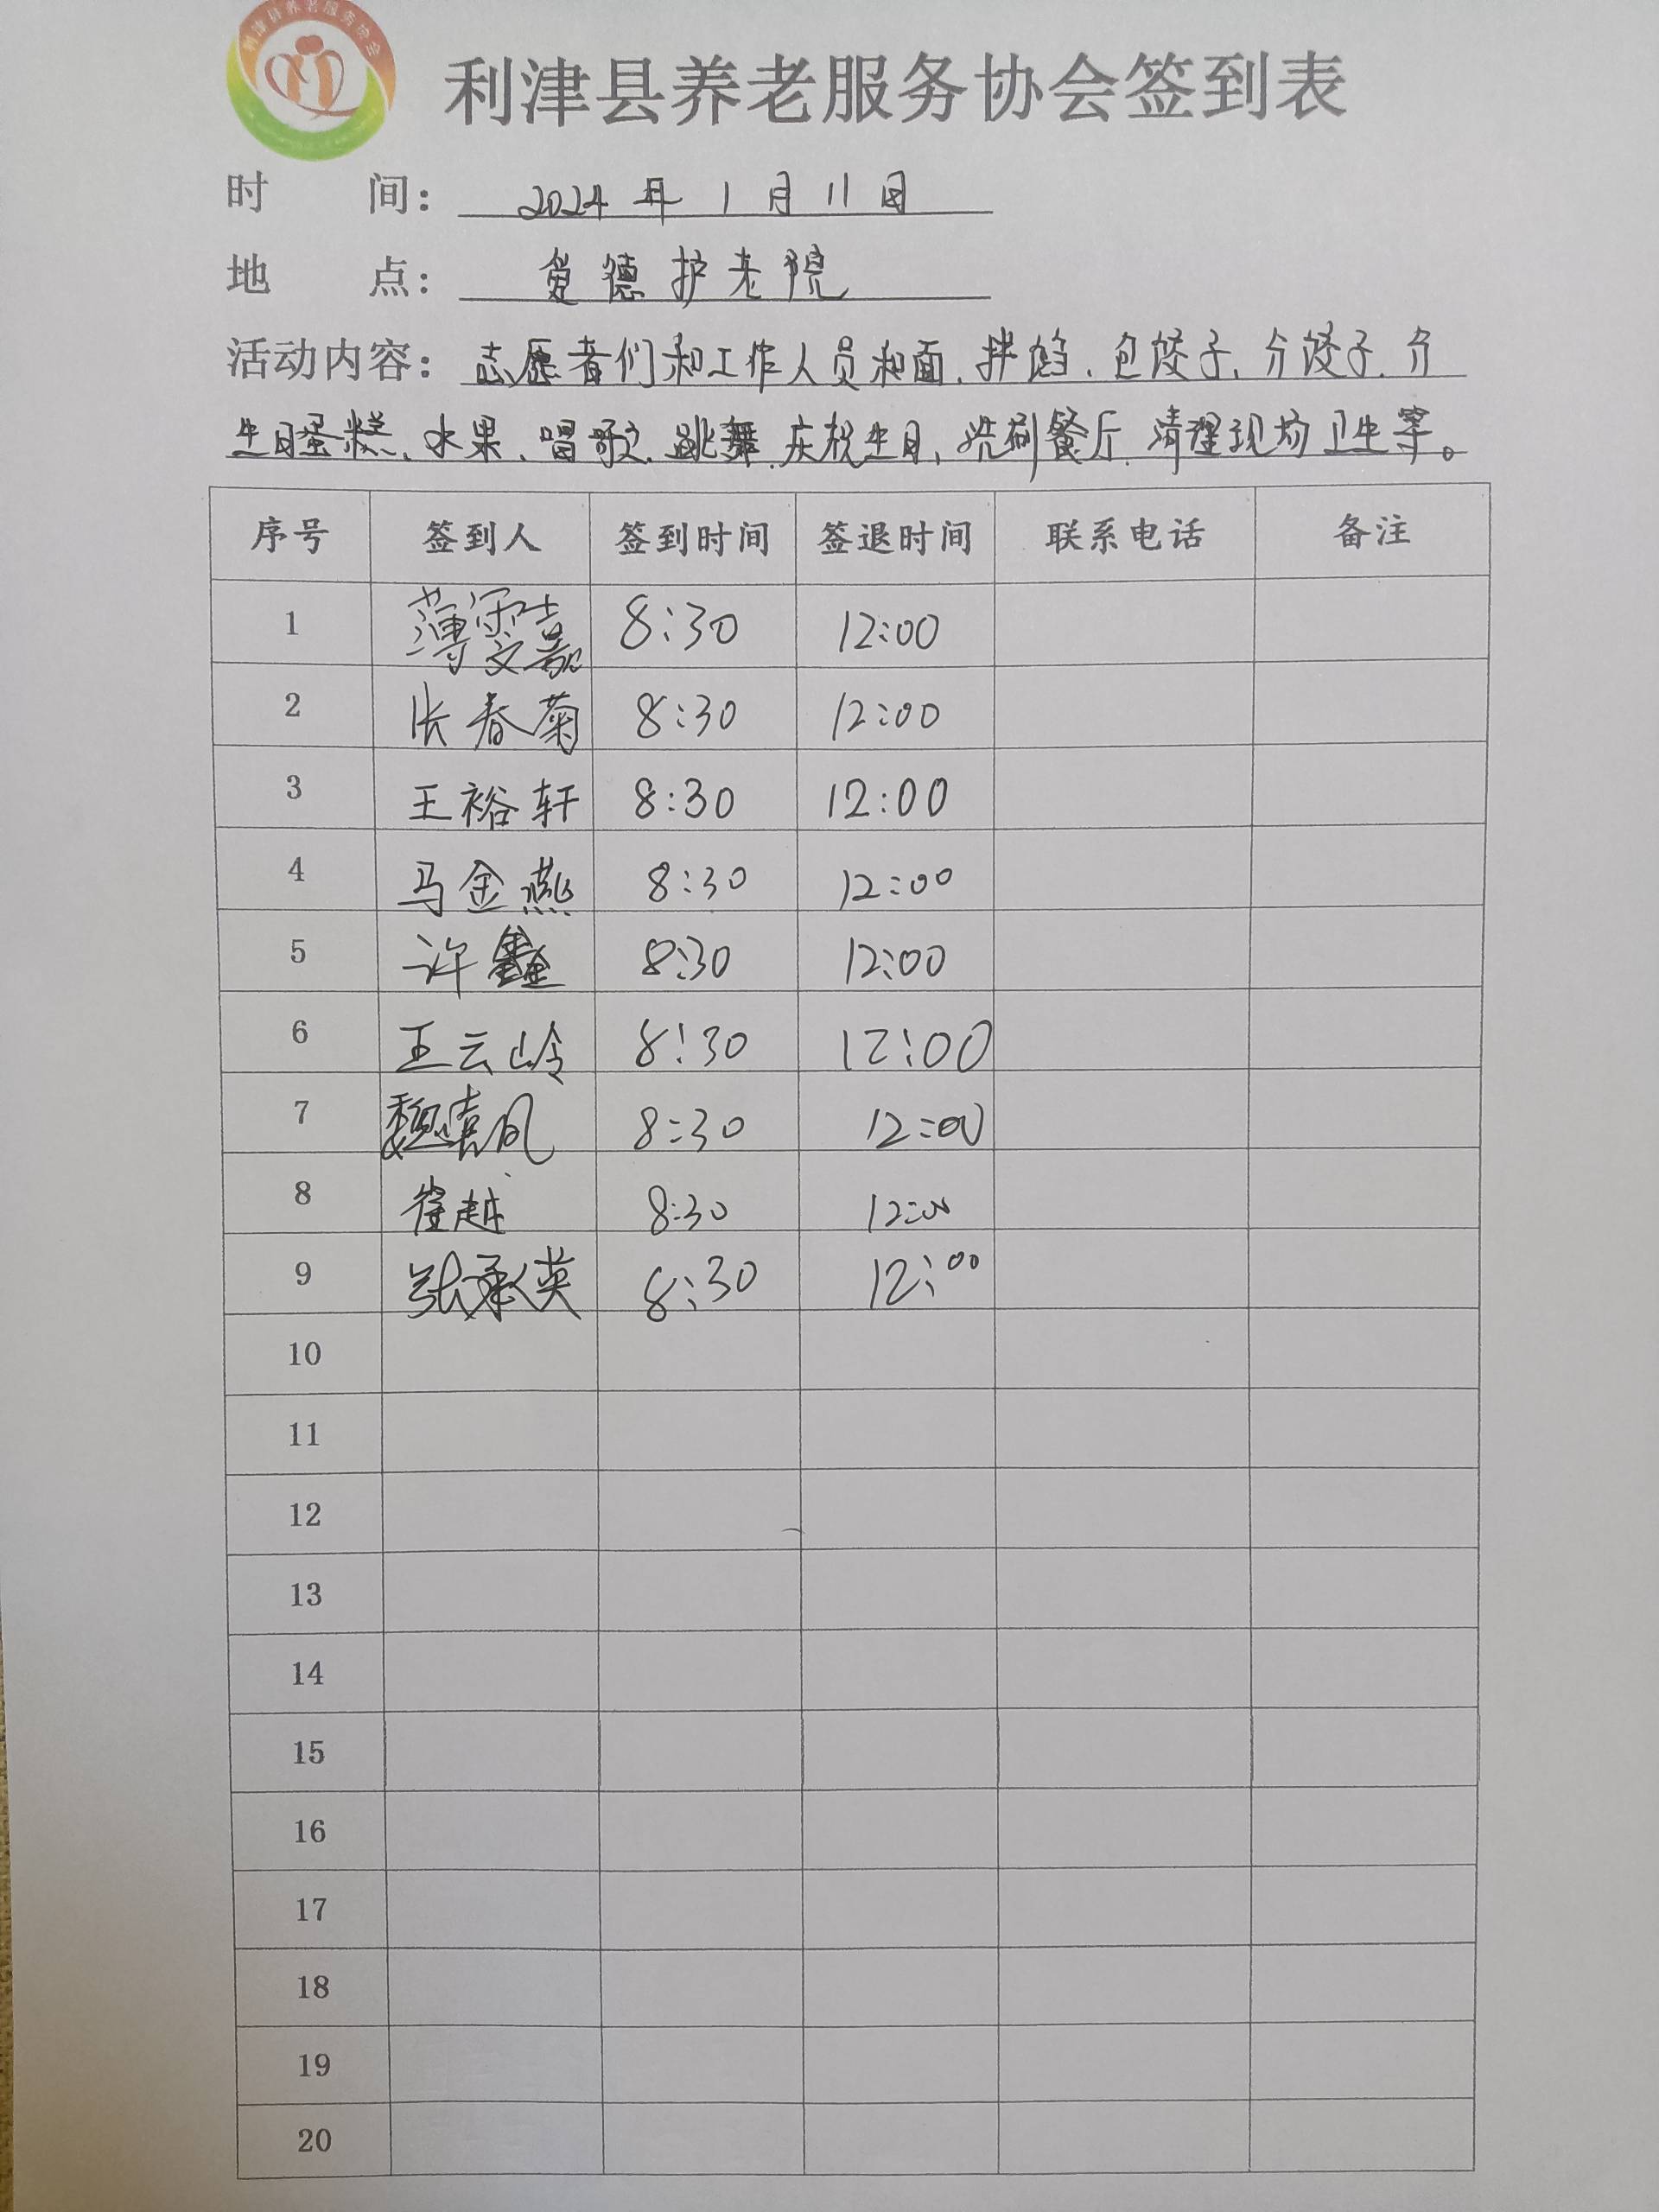 利津县养老服务协会
利津县养老服务协会签到表
时 间： 2024年1月11日
地 点： 爱德护老院
活动内容：志愿者们和工作人员和面、拌馅、包饺子、分饺子、分
生日蛋糕、水果、唱歌、跳舞、庆祝生日、洗刷餐厅、清理现场卫生等。
序号 签到人 签到时间 签退时间 联系电话 备注
1 薄雯嘉 8:30 12:00
2 张春菊 8:30 12:00
3 王裕轩 8:30 12:00
4 马金燕 8:30 12:00
5 许鑫 8:30 12:00
6 王云岭 8:30 12:00
7 魏喜凤 8:30 12:00
8 崔越 8:30 12:00
9 张承英 8:30 12:00
10
11
12
13
14
15
16
17
18
19
20